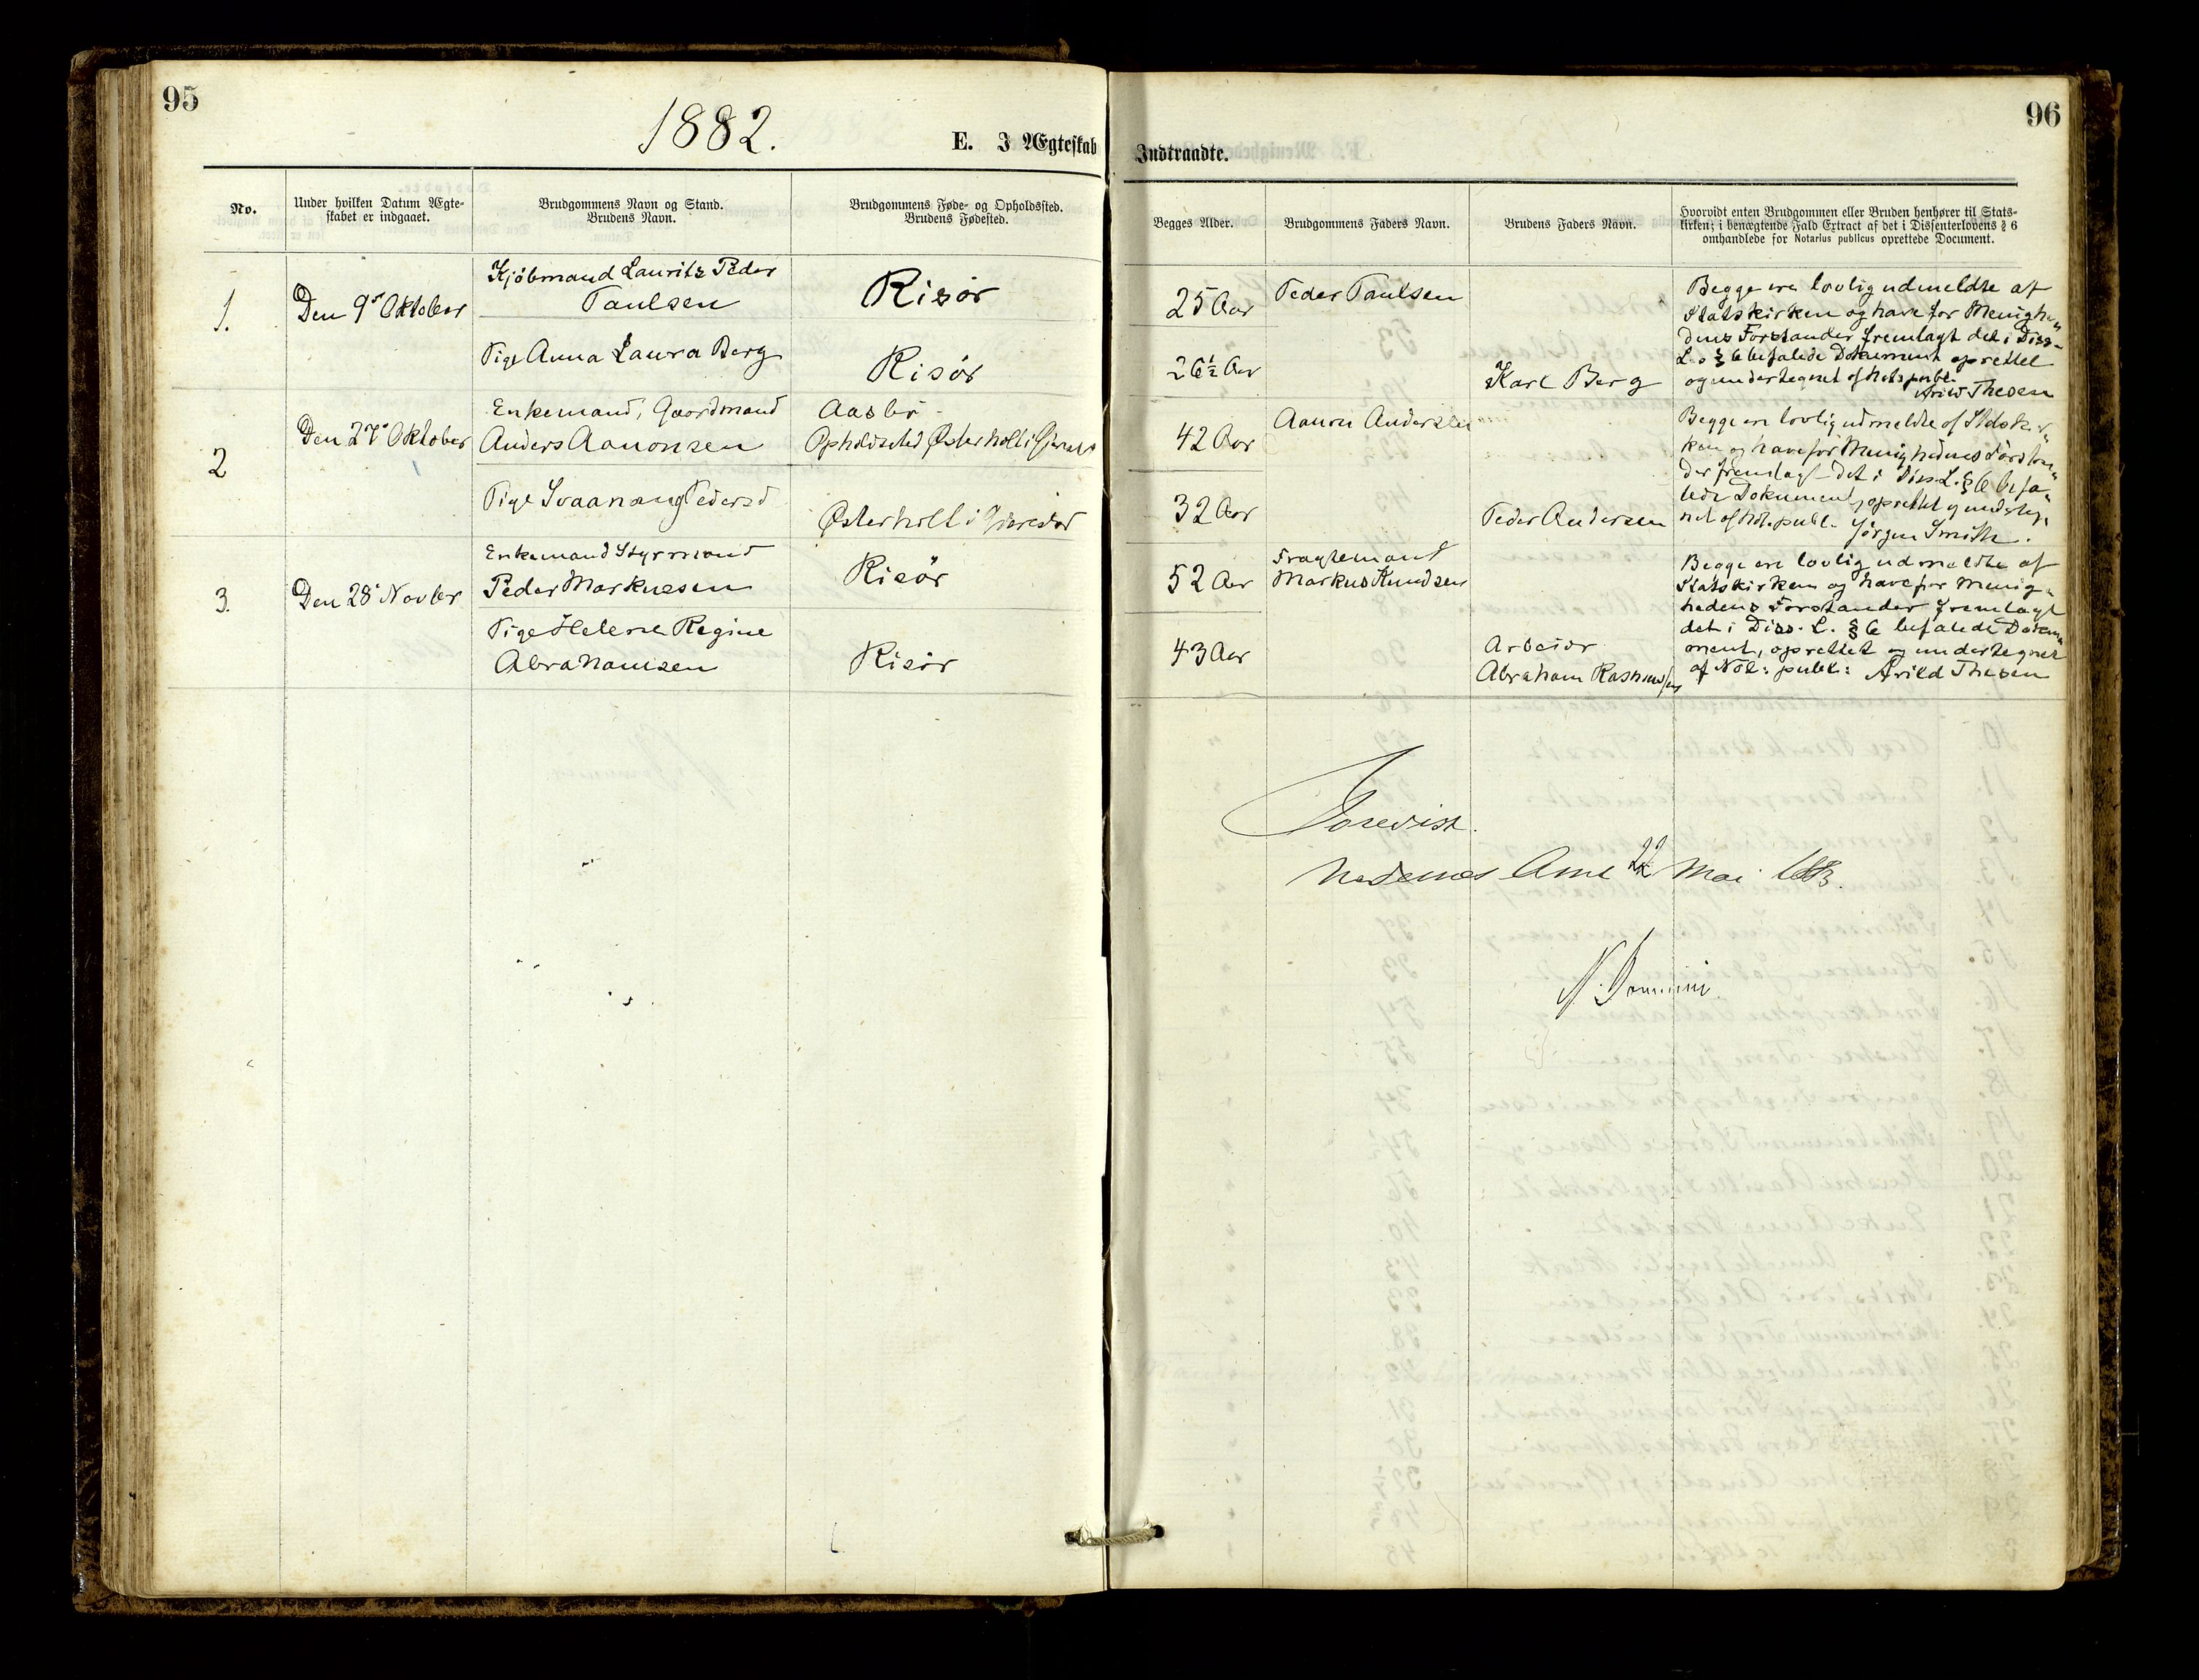 95
1882.
E. I Ægteskab
No.
Under hvilken Datum Ægte-
skabet er indgaaet.
Brudgommens Navn og Stand.
Brudens Navn.
Brudgommens Føde- og Opholdssted.
Brudens Fødested.
1.
Den 9de Oktober
Kjöbmand Lauritz Peder
Paulsen
Risör
Pige Anna Laura Berg
Risör
2
Den 27de Oktober
Enkemand, Gaardmand
Anders Aanonsen
Aasbö
Opholdssted Österholt i Gjerestad
Pige Svaanaug Pedersd
Österholt i Gjerestad
3.
Den 28de Novber
Enkemand Styrmand
Peder Markusen
Risör
Pige Helene Regine
Abrahamsen
Risör
96
Indtraadte.
Begges Alder.
Brudgommens Faders Navn.
Brudens Faders Navn.
Hvorvidt enten Brudgommen eller Bruden henhører til Stats-
kirken; i benægtende Fald Extract af det i Dissenterlovens § 6
omhandlede for Notarius publicus oprettede Document.
25 Aar
Peder Paulsen
26½ Aar
Karl Berg
Begge ere lovlig udmeldte af
Statskirken og have for Menighe-
dens Forstander fremlagt det i Diss-
L. § 6 befalede Dokument oprettet
og undertegnet af Not. publ.
Arild Thesen
42 Aar
Aanon Andersen
32 Aar
Peder Andersen
Begge ere lovlig udmeldte af Statskir-
ken og have for Menighedens Forstan-
der fremlagt det i Diss. L. § 6 befa-
lede Dokument, oprettet og underteg-
net af Not. publ. Jörgen Smith.
52 Aar
Fragtemand
Markus Knudsen
43 Aar
Arbeider
Abraham Rasmussen
Begge ere lovlig udmeldte af
Statskirken og have for Menig-
hedens Forstander fremlagt
det i Diss. L. § 6 befalede Doku-
ment, oprettet og undertegnet
af Not: publ: Arild Thesen
Forevist.
Nedenes Amt 22 Mai 1883.